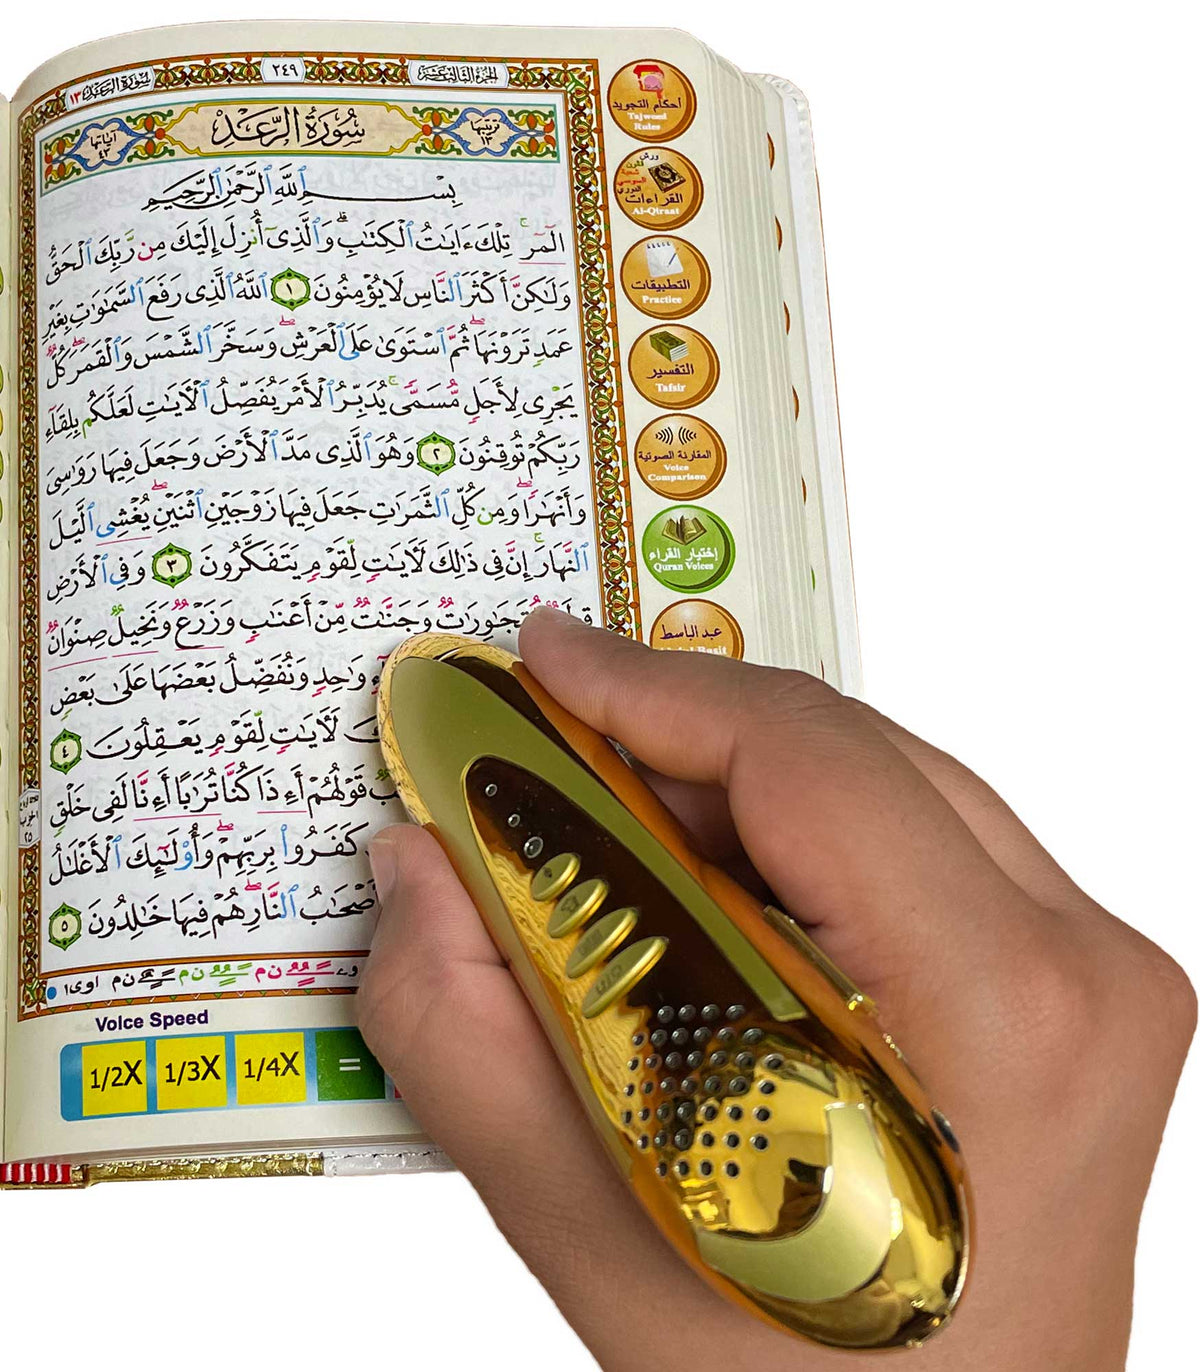 سورة الرعد ١٣
٢٤٩
الجزء الثالث عشر
ترتيبها ١٣
سُورَةُ الرَّعْدِ
آياتها ٤٣
بِسْمِ ٱللَّهِ ٱلرَّحْمَٰنِ ٱلرَّحِيمِ
الٓمٓر ۚ تِلْكَ ءَايَٰتُ ٱلْكِتَٰبِ ۗ وَٱلَّذِىٓ أُنزِلَ إِلَيْكَ مِن رَّبِّكَ ٱلْحَقُّ
وَلَٰكِنَّ أَكْثَرَ ٱلنَّاسِ لَا يُؤْمِنُونَ ١ ٱللَّهُ ٱلَّذِى رَفَعَ ٱلسَّمَٰوَٰتِ بِغَيْرِ
عَمَدٍ تَرَوْنَهَا ۖ ثُمَّ ٱسْتَوَىٰ عَلَى ٱلْعَرْشِ ۖ وَسَخَّرَ ٱلشَّمْسَ وَٱلْقَمَرَ ۖ كُلٌّ
يَجْرِى لِأَجَلٍ مُّسَمًّى ۚ يُدَبِّرُ ٱلْأَمْرَ يُفَصِّلُ ٱلْءَايَٰتِ لَعَلَّكُم بِلِقَآءِ
رَبِّكُمْ تُوقِنُونَ ٢ وَهُوَ ٱلَّذِى مَدَّ ٱلْأَرْضَ وَجَعَلَ فِيهَا رَوَٰسِىَ
وَأَنْهَٰرًا ۖ وَمِن كُلِّ ٱلثَّمَرَٰتِ جَعَلَ فِيهَا زَوْجَيْنِ ٱثْنَيْنِ ۖ يُغْشِى ٱلَّيْلَ
ٱلنَّهَارَ ۚ إِنَّ فِى ذَٰلِكَ لَءَايَٰتٍ لِّقَوْمٍ يَتَفَكَّرُونَ ٣ وَفِى ٱلْأَرْضِ
مُّتَجَٰوِرَٰتٌ وَجَنَّٰتٌ مِّنْ أَعْنَٰبٍ وَزَرْعٌ وَنَخِيلٌ صِنْوَانٌ
وَٰحِدٍ وَنُفَضِّلُ بَعْضَهَا عَلَىٰ بَعْضٍ
لَءَايَٰتٍ لِّقَوْمٍ يَعْقِلُونَ ٤
قَوْلُهُمْ أَءِذَا كُنَّا تُرَٰبًا أَءِنَّا لَفِى خَلْقٍ
كَفَرُوا۟ بِرَبِّهِمْ ۖ وَأُو۟لَٰٓئِكَ ٱلْأَغْلَٰلُ
أَصْحَٰبُ ٱلنَّارِ ۖ هُمْ فِيهَا خَٰلِدُونَ ٥
Voice Speed
1/2X 1/3X 1/4X =
أحكام التجويد
Tajweed
Rules
ورش
قالون
شعبة
السوسي
الدوري
القراءات
Al-Qiraat
التطبيقات
Practice
التفسير
Tafsir
المقارنة الصوتية
Voice
Comparison
إختيار القراء
Quran Voices
عبد الباسط
Basit